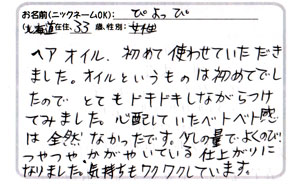 お名前(ニックネームOK): ぴよっぴ
(北海道在住、33歳、性別: 女性)
ヘアオイル、初めて使わせていただき
ました。オイルというものは初めてでし
たので とてもドキドキしながらつけ
てみました。心配していたベトベト感
は全然なかったです。少しの量でよくのび
つやつや、かがやいている仕上がりに
なりました。気持ちもワクワクしています。